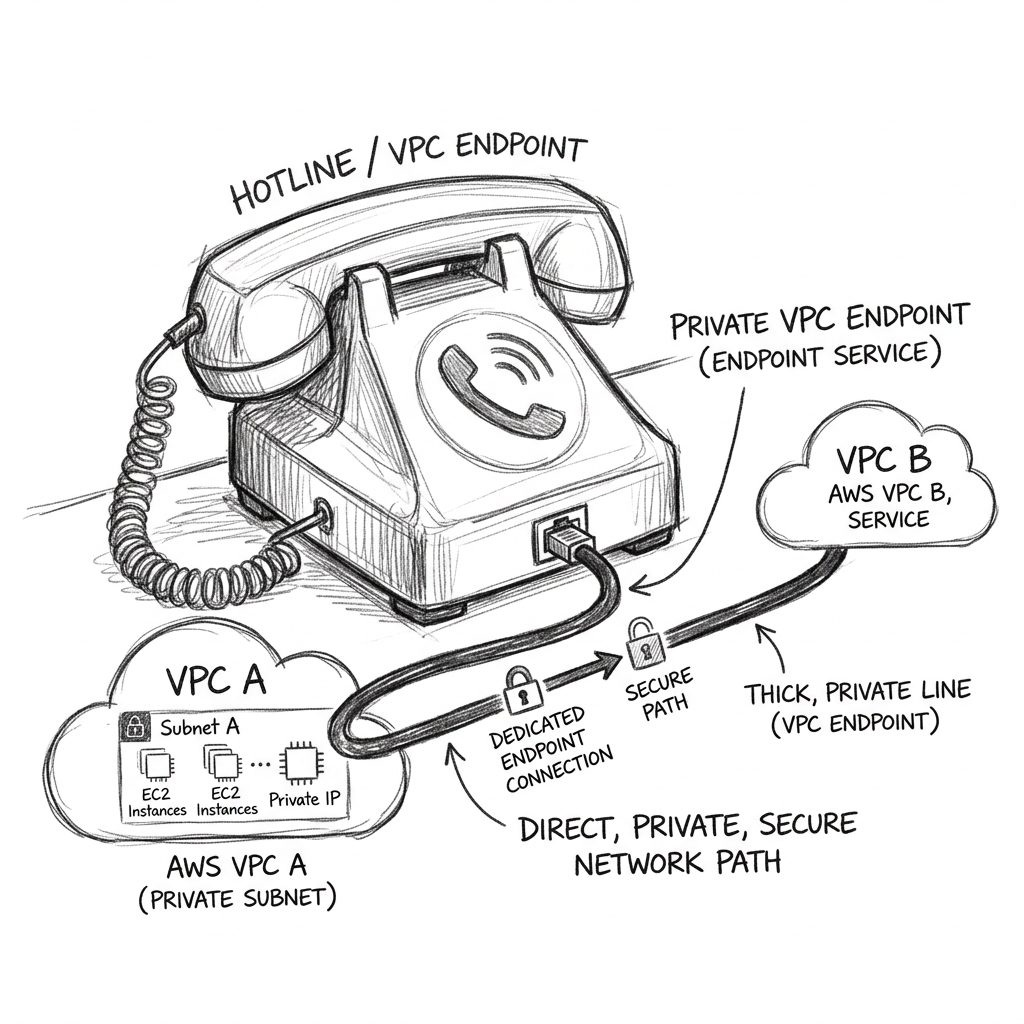 HOTLINE / VPC ENDPOINT
PRIVATE VPC ENDPOINT
(ENDPOINT SERVICE)
VPC B
AWS VPC B,
SERVICE
VPC A
Subnet A
EC2
Instances
EC2
Instances
Private IP
AWS VPC A
(PRIVATE SUBNET)
DEDICATED
ENDPOINT
CONNECTION
SECURE
PATH
THICK, PRIVATE LINE
(VPC ENDPOINT)
DIRECT, PRIVATE, SECURE
NETWORK PATH